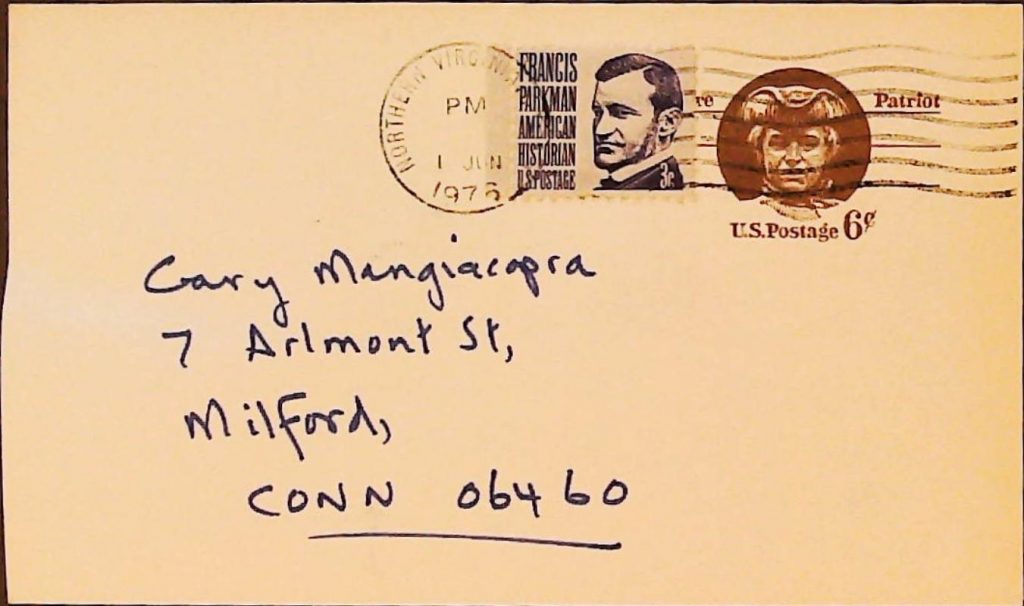 NORTHERN VIRGINIA
PM
1 JUN
1976
FRANCIS
PARKMAN
AMERICAN
HISTORIAN
U.S.POSTAGE
3c
re Patriot
U.S.Postage 6¢
Gary Mangiacopra
7 Arlmont St,
Milford,
CONN 06460